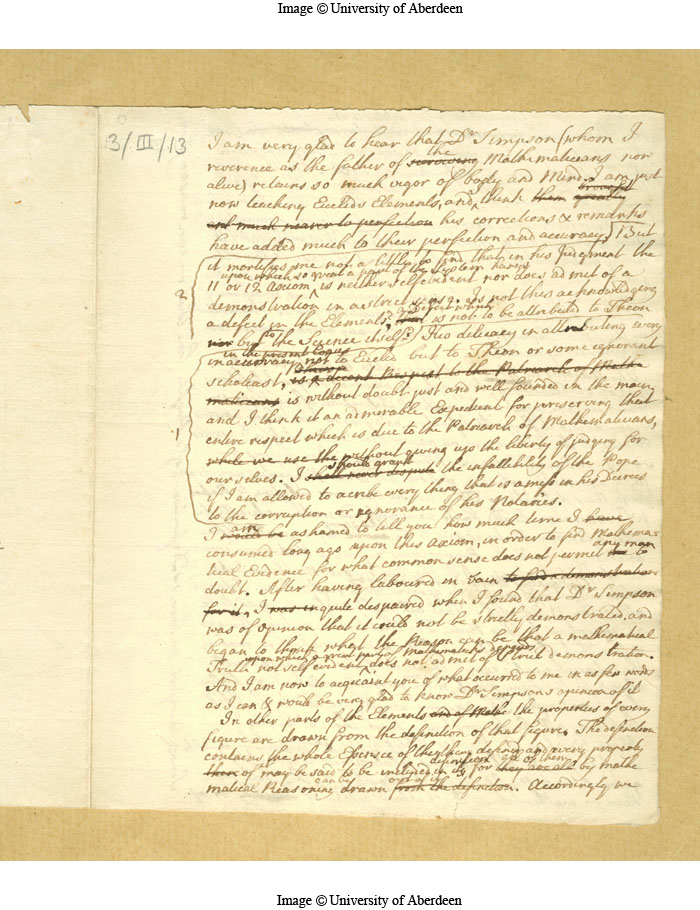 Image © University of Aberdeen
3/III/13
I am very glad to hear that Dr Simpson (whom I
reverence as the father of the surviving Mathematicians now
alive) retains so much vigor of body and Mind. I am just
now teaching Euclids Elements, and think them greatly brought
and much nearer to perfection his corrections & remarks
have added much to their perfection and accuracy. But
it mortifies me not a little to find that in his Judgment the
upon which so great a part of the System hangs
11 or 12 Axiom, is neither selfevident nor does admit of a
demonstration in a strict sense. Is not this acknowledging
2
a defect in the Elements, a defect which is not to be attributed to Theon
nor but to the Science itself? His delicacy in attributing every
in the present Copys
inaccuracy not to Euclid but to Theon or some ignorant
scholiast, is a decent Respect to the Patriarch of Math
ematicians is without doubt just and well founded in the main
and I think it an admirable Expedient for preserving that
entire respect which is due to the Patriarch of Mathematicians,
1
while we use the without giving up the liberty of judging for
our selves. I shall never dispute should grant the infallibility of the Pope
if I am allowed to ascribe every thing that is amiss in his Decrees
to the corruption or ignorance of his Notaries.
I would be am ashamed to tell you how much time I have
consumed long ago upon this Axiom, in order to find Mathema
tical Evidence for what common sense does not permit any man to
doubt. After having laboured in vain to find a demonstration
for it, I was in quite despaired when I found that Dr Simpson
was of Opinion that it could not be strictly demonstrated, and
began to think what the Reason can be that a mathematical
upon which a great part of Mathematicks
Truth not self evident does not admit of strict demonstration.
And I am now to acquaint you of what occurred to me in as few words
as I can & would be very glad to know Dr Simpsons opinion of it
In other parts of the Elements and of Math the properties of every
figure are drawn from the definition of that figure. The definition
contains the whole Essence of the thing defined and every property
them of may be said to be included in the definition for they are all of them by mathe
matical Reasoning can be drawn out of it from the definition. Accordingly we
Image © University of Aberdeen